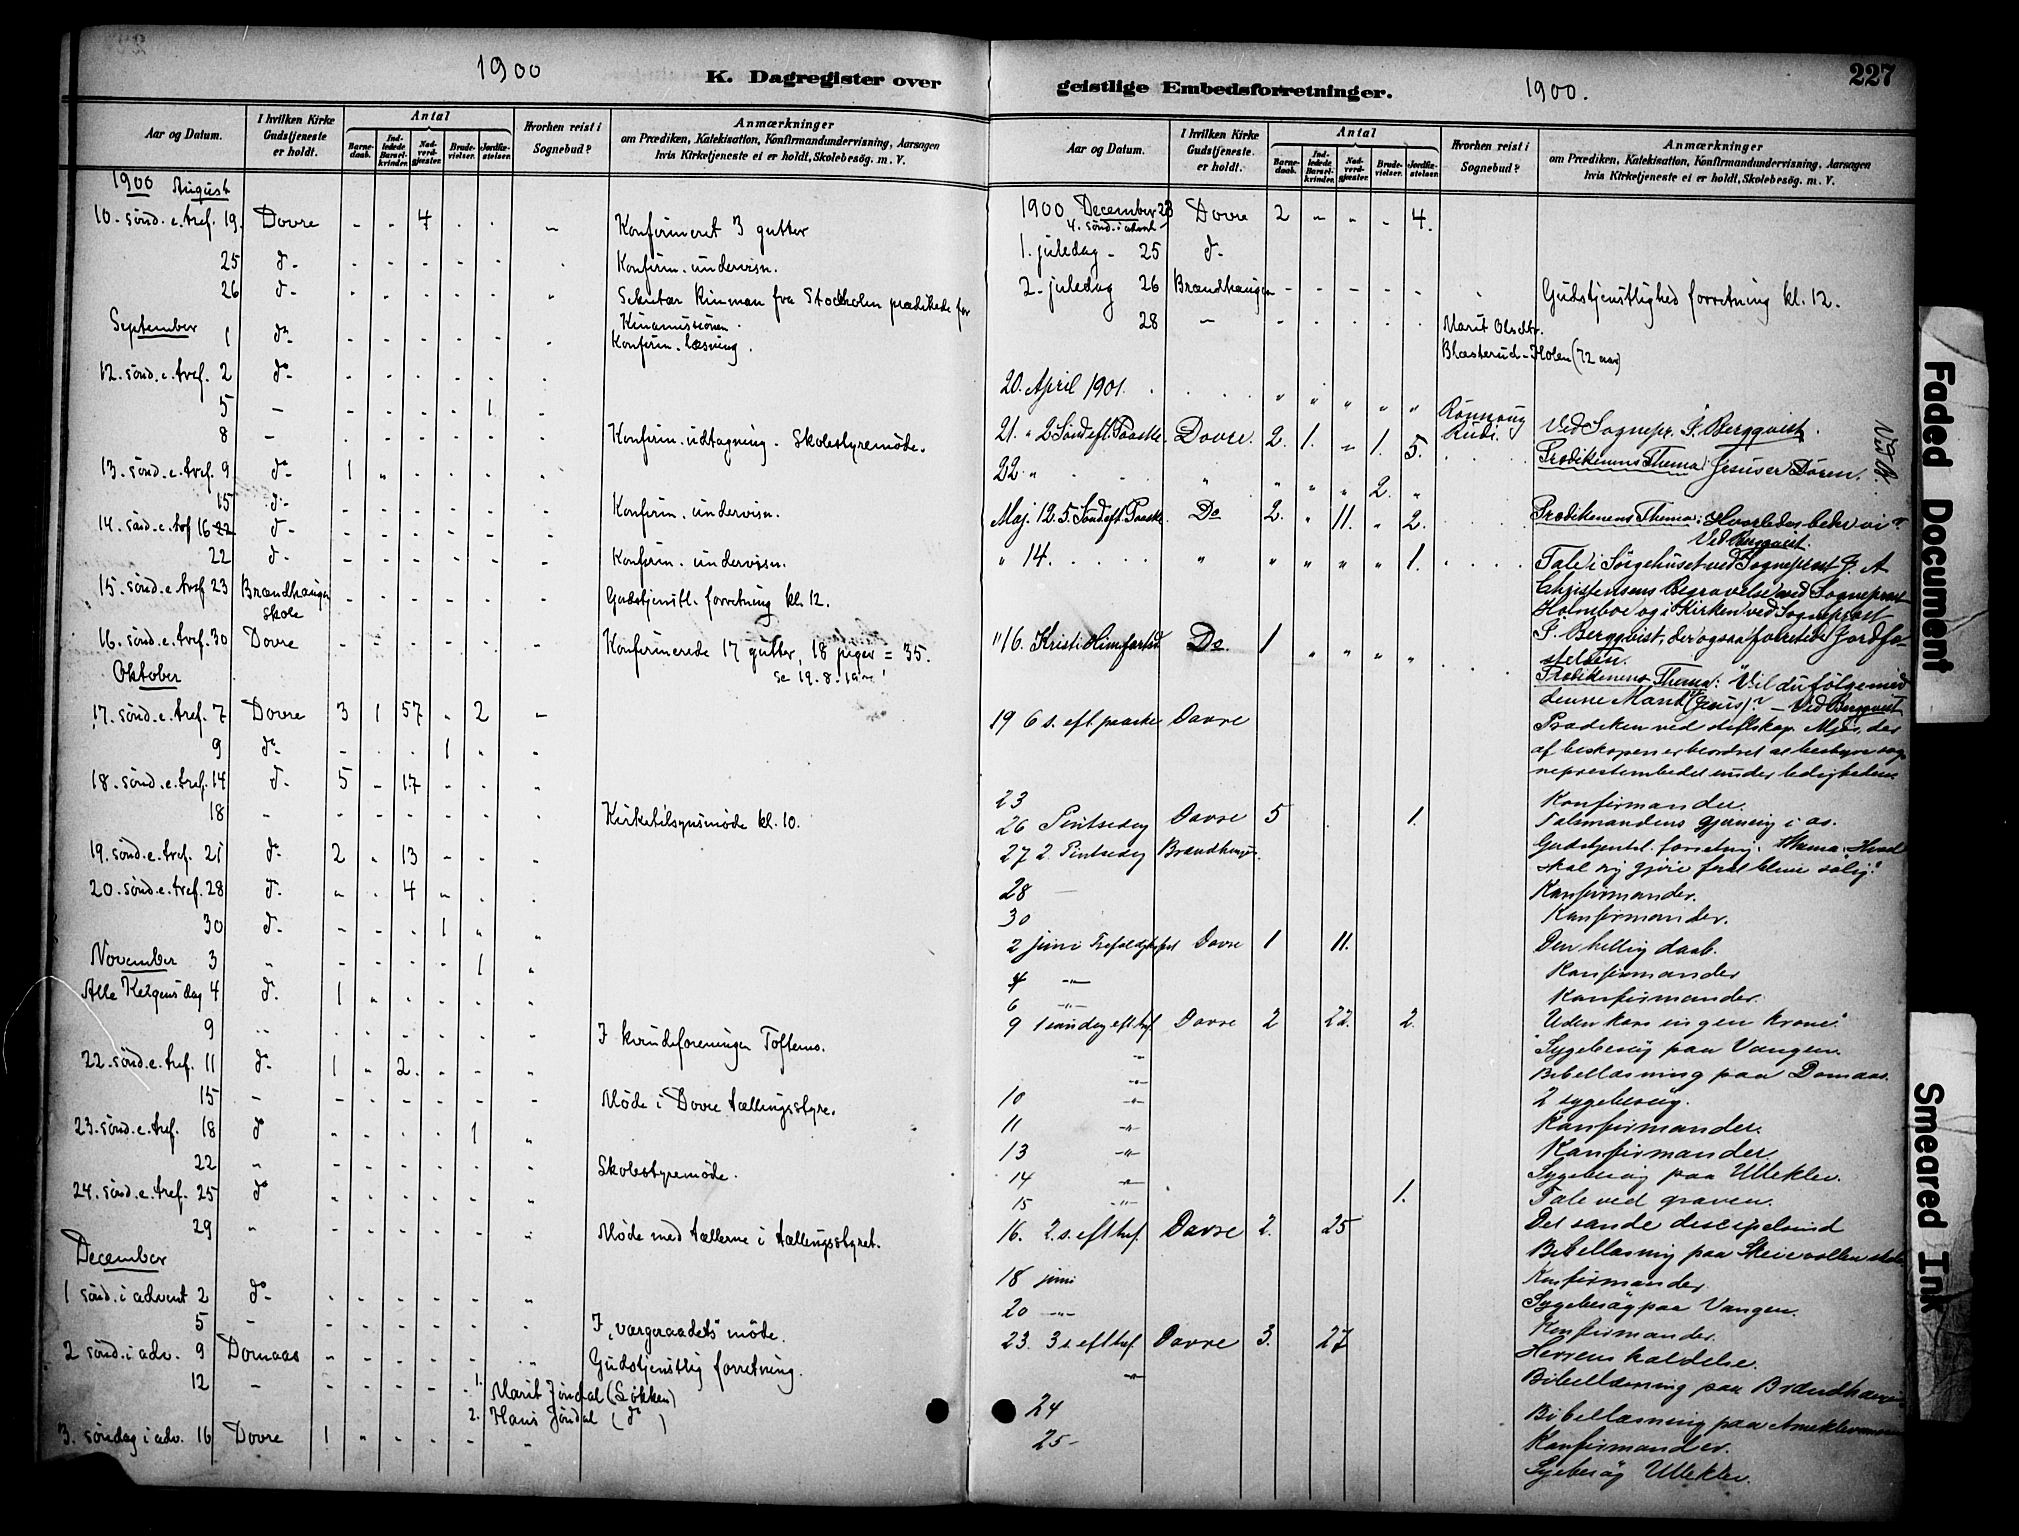 1900
K. Dagregister over
Aar og Datum.
I hvilken Kirke Gudstjeneste er holdt.
Antal
Barnedaab.
Indledede Barselkvinder.
Nadverdgjæster.
Brudevielser.
Jordfæstelser.
Hvorhen reist i Sognebud?
Anmærkninger
om Prædiken, Katekisation, Konfirmandundervisning, Aarsagen
hvis Kirketjeneste ei er holdt, Skolebesøg. m. V.
1900 August
10. sönd. e. tref. 19. Dovre - - 4 - - - Konfirmeret 3 gutter
25 do - Konfirm. undervisn.
26 do - Sekretær Rinman fra Stockholm prædikede for
Kinamissionen.
September 1 do - Konfirm. læsning.
12. sönd. e. tref. 2 do -
5 - - - - - 1 -
8 - Konfirm. udtagning. Skolestyremöde.
13. sönd. e. tref. 9 do - 1
15 do - Konfirm. undervisn.
14. sönd. e. tref 16 22 do -
22 do - Konfirm. undervisn.
15. sönd. e. tref 23 Brændhaugen skole Gudstjenstl. forretning kl. 12.
16. sönd. e. tref. 30 Dovre Konfirmerede 17 gutter, 18 piger = 35.
se 19.8.
Oktober
17. sönd. e. tref. 7 Dovre 3 1 57 - 2 -
9 do - - - - 1
18. sönd. e. tref. 14 do 5 - 17 - - -
18 - Kirketilsynsmöde kl. 10.
19. sönd. e. tref. 21 do 2 - 13 - - -
20. sönd. e. tref. 28 do - - 4 - - -
30 do - - - 1
November 3 - - - - 1
Alle Helgens dag 4 do 1
9 - I kvindeforeningen Toftemo.
22. sönd. e. tref. 11 do 1 - 2 - - -
15 - Möde i Dovre tællingsstyre.
23. sönd. e. tref. 18 do - - - - 1
22 - Skolestyremöde.
24. sönd. e. tref. 25 do
29 - Möde med tællerne i tællingsstyret.
December
1 sönd. i advent 2 do -
5 - I „værgeraadets" möde.
2 sönd. i adv. 9 Domaas Gudstjenstlig forretning.
12 - 1. Marit Jöndal (Lökken)
2. Hans Jöndal (do)
3. söndag i adv. 16 Dovre 1
geistlige Embedsforretninger.
1900.
227
Aar og Datum.
I hvilken Kirke Gudstjeneste er holdt.
Antal
Barnedaab.
Indledede Barselkvinder.
Nadverdgjæster.
Brudevielser.
Jordfæstelser.
Hvorhen reist i Sognebud?
Anmærkninger
om Prædiken, Katekisation, Konfirmandundervisning, Aarsagen
hvis Kirketjeneste ei er holdt, Skolebesøg. m. V.
1900 December 23 Dovre 2 - - - 4.
4. sönd. i advent
1. juledag - 25 do -
2. juledag 26 Brændhaugen Gudstjenstlighed forretning kl. 12.
28 - Marit Olsdtr.
Blæsterud-Holen (72 aar)
20. April 1901. Rönnaug Rudi
21. " 2 Sönd eft. Paaske. Dovre. 2. 1. " 1. 5. Ved Sognepr. P. Bergqvist.
Prædikenens Thema: Jesus er Dören.
22 " 2.
Maj. 12. 5. Sönd eft. Paaske Do 2. " 11. " 2. Prædikenens Thema: Hvorledes beder vi?
Ved Bergqvist.
" 14. 1. Tale i Sörgehuset ved Sogneprest J. A
Christensens Begravelse ved Sogneprest
Holmboe og i Kirken ved Sogneprest
P. Bergqvist, der ogsaa forrettede Jordfæ-
stelsen.
" 16. Kristi Himmelfartsd Do. 1 Prædikenens Thema: "Vil du følge med
denne Mand (Jesus)?" - Ved Bergqvist
19 6 s. eft paaske Dovre Prædiken ved stiftskap. Mjös, der
af biskopen er beordret at bestyre sog-
neprestembedet under ledigheden.
23 Konfirmander.
26 Pintsedag Dovre 5 1. Talsmandens gjerning i os.
27 2. Pintsedag Brændhaugen Gudstjenstl. forretnig. Thema: Hvad
skal jeg gjöre for at blive salig?
28 - Konfirmander.
30 Konfirmander.
2 juni Trefoldighedsfest Dovre 1 11. Den hellig daab.
4 -"- Konfirmander
6 -"- Konfirmander.
9 1 söndag eft tref Dovre 2 22. 2. Uden kors ingen krone.
-"- Sygebesög paa Vangen.
-"- Bibellæsning paa Domaas.
10 -"- 2 sygebesög.
11 -"- Konfirmander.
13 -"- Konfirmander.
14 -"- Sygebesög paa Ullekler.
15 -"- 1. Tale ved graven.
16. 2. s. eft tref. Dovre 2. 25 Det sande discipelsind
Bibellæsning paa Skeievollen skole
18 juni Konfirmander
20 -"- Sygebesög paa Vangen.
Konfirmander.
23. 3 s. eft tref. Dovre 3. 27 Herrens kaldelse.
-"- Bibellæsning paa Brændhaugen
24 Bibellæsning paa
25 - Konfirmander.
Sygebesög Ullekler.
Faded Document
Smeared Ink